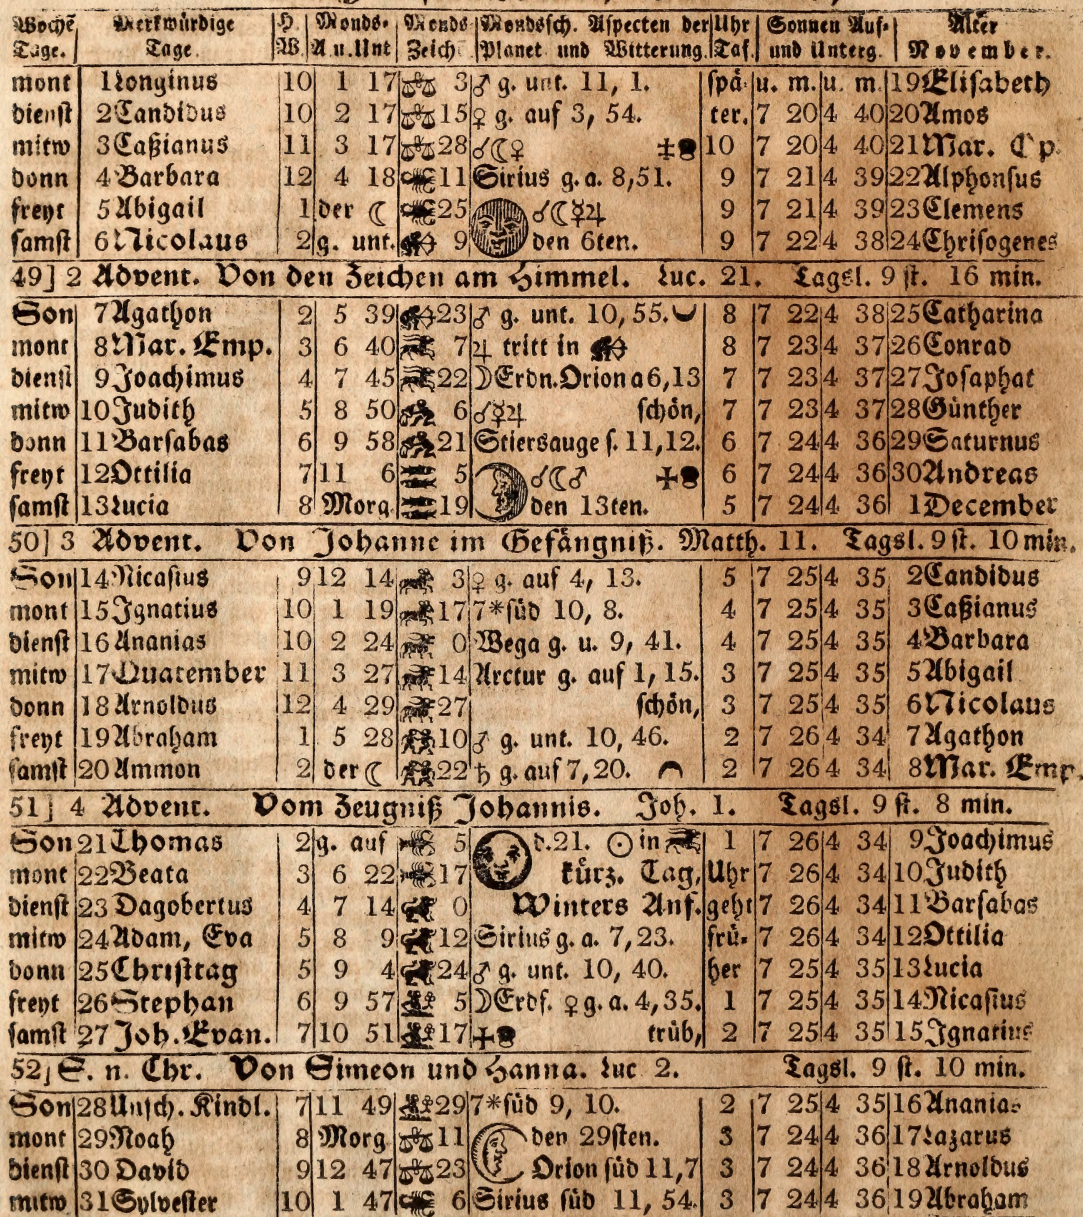 Woche Merkwürdige H. Monds- Monds Mondssch. Aspecten der Uhr Sonnen Auf- Alter
Tage. Tage. W. A u. Unt Zeich Planet und Witterung. Taf. und Unterg. November.
mont 1 Longinus 10 1 17 ♎ 3 ♂ g. unt. 11, 1. spä- u. m. u. m. 19 Elisabeth
dienst 2 Candidus 10 2 17 ♎ 15 ♀ g. auf 3, 54. ter. 7 20 4 40 20 Amos
mitw 3 Caßianus 11 3 17 ♎ 28 ☌☾♀ 10 7 20 4 40 21 Mar. Op.
donn 4 Barbara 12 4 18 ♏ 11 Sirius g. a. 8,51. 9 7 21 4 39 22 Alphonsus
freyt 5 Abigail 1 der ☾ ♏ 25 ☌☾☿♃ 9 7 21 4 39 23 Clemens
samst 6 Nicolaus 2 g. unt. ♐ 9 den 6ten. 9 7 22 4 38 24 Chrisogenes
49] 2 Advent. Von den Zeichen am Himmel. Luc. 21. Tagsl. 9 st. 16 min.
Son 7 Agathon 2 5 39 ♐ 23 ♂ g. unt. 10, 55. 8 7 22 4 38 25 Catharina
mont 8 Mar. Emp. 3 6 40 ♑ 7 ♃ tritt in ♐ 8 7 23 4 37 26 Conrad
dienst 9 Joachimus 4 7 45 ♑ 22 ☽ Erdn. Orion a 6,13 7 7 23 4 37 27 Josaphat
mitw 10 Judith 5 8 50 ♒ 6 ☌☿♃ schön, 7 7 23 4 37 28 Günther
donn 11 Barsabas 6 9 58 ♒ 21 Stiersauge s. 11,12. 6 7 24 4 36 29 Saturnus
freyt 12 Ottilia 7 11 6 ♓ 5 ☌☾♂ 6 7 24 4 36 30 Andreas
samst 13 Lucia 8 Morg. ♓ 19 den 13ten. 5 7 24 4 36 1 December
50] 3 Advent. Von Johanne im Gefängniß. Matth. 11. Tagsl. 9 st. 10 min.
Son 14 Nicasius 9 12 14 ♈ 3 ♀ g. auf 4, 13. 5 7 25 4 35 2 Candidus
mont 15 Ignatius 10 1 19 ♈ 17 7*süd 10, 8. 4 7 25 4 35 3 Caßianus
dienst 16 Ananias 10 2 24 ♉ 0 Wega g. u. 9, 41. 4 7 25 4 35 4 Barbara
mitw 17 Quatember 11 3 27 ♉ 14 Arctur g. auf 1, 15. 3 7 25 4 35 5 Abigail
donn 18 Arnoldus 12 4 29 ♉ 27 schön, 3 7 25 4 35 6 Nicolaus
freyt 19 Abraham 1 5 28 ♊ 10 ♂ g. unt. 10, 46. 2 7 26 4 34 7 Agathon
samst 20 Ammon 2 der ☾ ♊ 22 ♄ g. auf 7,20. 2 7 26 4 34 8 Mar. Emp.
51] 4 Advent. Vom Zeugniß Johannis. Joh. 1. Tagsl. 9 st. 8 min.
Son 21 Thomas 2 g. auf ♋ 5 d. 21. ☉ in ♑ 1 7 26 4 34 9 Joachimus
mont 22 Beata 3 6 22 ♋ 17 kürz. Tag, Uhr 7 26 4 34 10 Judith
dienst 23 Dagobertus 4 7 14 ♌ 0 Winters Anf. geht 7 26 4 34 11 Barsabas
mitw 24 Adam, Eva 5 8 9 ♌ 12 Sirius g. a. 7,23. frü- 7 26 4 34 12 Ottilia
donn 25 Christtag 5 9 4 ♌ 24 ♂ g. unt. 10, 40. her 7 25 4 35 13 Lucia
freyt 26 Stephan 6 9 57 ♍ 5 ☽ Erdf. ♀ g. a. 4,35. 1 7 25 4 35 14 Nicasius
samst 27 Joh. Evan. 7 10 51 ♍ 17 trüb, 2 7 25 4 35 15 Ignatius
52] S. n. Chr. Von Simeon und Hanna. Luc 2. Tagsl. 9 st. 10 min.
Son 28 Unsch. Kindl. 7 11 49 ♍ 29 7*süd 9, 10. 2 7 25 4 35 16 Ananias
mont 29 Noah 8 Morg ♎ 11 den 29sten. 3 7 24 4 36 17 Lazarus
dienst 30 David 9 12 47 ♎ 23 Orion süd 11,7 3 7 24 4 36 18 Arnoldus
mitw 31 Sylvester 10 1 47 ♏ 6 Sirius süd 11, 54. 3 7 24 4 36 19 Abraham